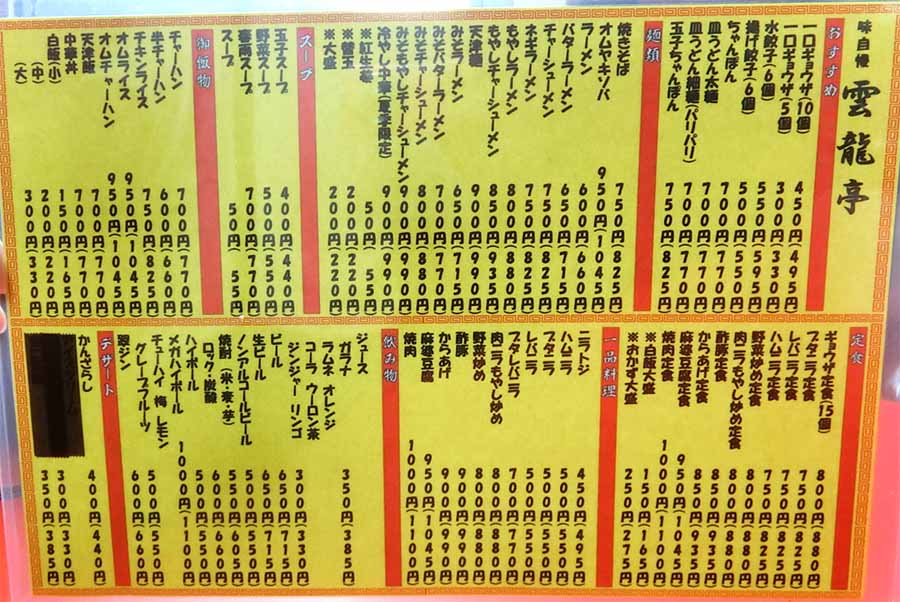 味自慢 雲龍亭
おすすめ
一口ギョウザ(10個) 450円(495円)
一口ギョウザ(5個) 300円(330円)
水餃子(6個)
揚げ餃子(6個)
ちゃんぽん
皿うどん太麺 700円(770円)
皿うどん細麺(パリパリ) 700円(770円)
玉子ちゃんぽん 750円(825円)
麺類
焼きそば 750円(825円)
オムヤキソバ 950円(1045円)
ラーメン 600円(660円)
バターラーメン 650円(715円)
チャーシューメン 750円(825円)
ネギラーメン 750円(825円)
もやしラーメン
もやしチャーシューメン
天津麺
みそラーメン 650円(715円)
みそバターラーメン 700円(770円)
みそチャーシューメン 800円(880円)
みそもやしチャーシューメン 900円(990円)
冷やし中華(夏季限定) 900円(990円)
※紅生姜 50円(55円)
※替玉 200円(220円)
※大盛 200円(220円)
スープ
玉子スープ 400円(440円)
野菜スープ 500円(550円)
春雨スープ 700円(770円)
スープ 50円(55円)
御飯物
チャーハン 700円(770円)
半チャーハン 600円(660円)
チキンライス 750円(825円)
オムライス 950円(1045円)
オムチャーハン 950円(1045円)
天津飯 700円(770円)
中華丼 700円(770円)
白飯(小) 150円(165円)
(中) 200円(220円)
(大) 300円(330円)
定食
ギョウザ定食(15個) 800円(880円)
ブタニラ定食 750円(825円)
レバニラ定食 750円(825円)
ハムニラ定食 750円(825円)
野菜炒め定食 800円(880円)
肉ニラもやし炒め定食 800円(880円)
酢豚定食
からあげ定食 850円(935円)
麻婆豆腐定食 950円(1045円)
焼肉定食 1000円(1100円)
※白飯大盛 150円(165円)
※おかず大盛 250円(275円)
一品料理
ニラトジ 450円(495円)
ハムニラ 500円(550円)
ブタニラ 500円(550円)
レバニラ 500円(550円)
ブタレバニラ 700円(770円)
肉ニラもやし炒め 800円(880円)
野菜炒め 800円(880円)
酢豚 900円(990円)
からあげ 900円(990円)
麻婆豆腐 950円(1045円)
焼肉 1000円(1100円)
飲み物
ジュース
ガラナ 350円(385円)
ラムネ オレンジ
コーラ ウーロン茶
ジンジャー リンゴ 300円(330円)
ビール 650円(715円)
生ビール 650円(715円)
ノンアルコールビール
焼酎(米・麦・芋)
ロック・炭酸
ハイボール 500円(550円)
メガハイボール 1000円(1100円)
チューハイ 梅 レモン
グレープフルーツ 500円(550円)
翠ジン 600円(660円)
デザート
かんざらし 400円(440円)
300円(330円)
350円(385円)